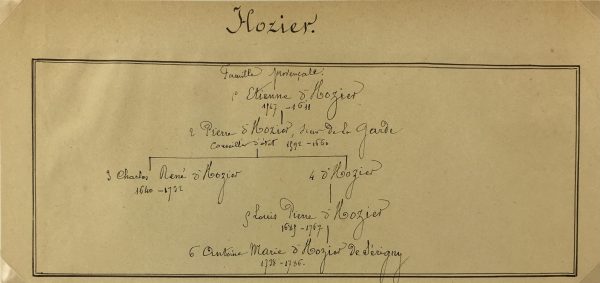 Hozier.
Famille provençale.
1 Etienne d'Hozier
1547 - 1611
2 Pierre d'Hozier, sieur de la Garde
Conseiller d'état 1592 - 1660
3 Charles René d'Hozier
1640 - 1732
4 d'Hozier
5 Louis Pierre d'Hozier
1685 - 1767
6 Antoine Marie d'Hozier de Sérigny